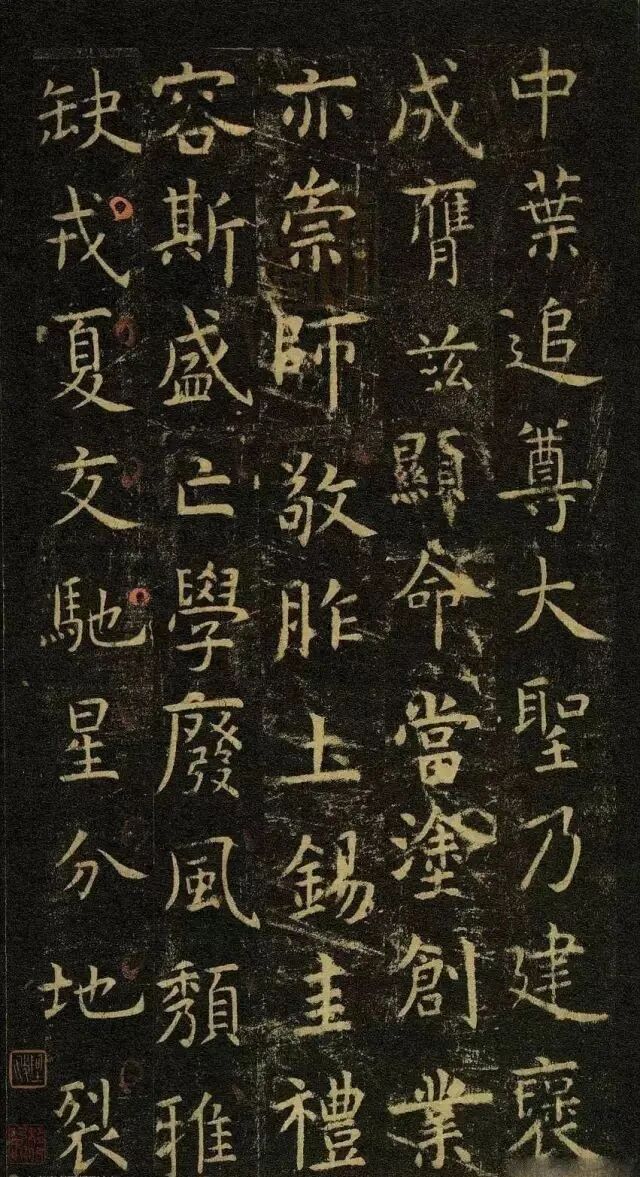 中葉追尊大聖乃建襃
成膺茲顯命當塗創業
亦崇師敬胙土錫圭禮
容斯盛亡學廢風頽雅
缺戎夏交馳星分地裂